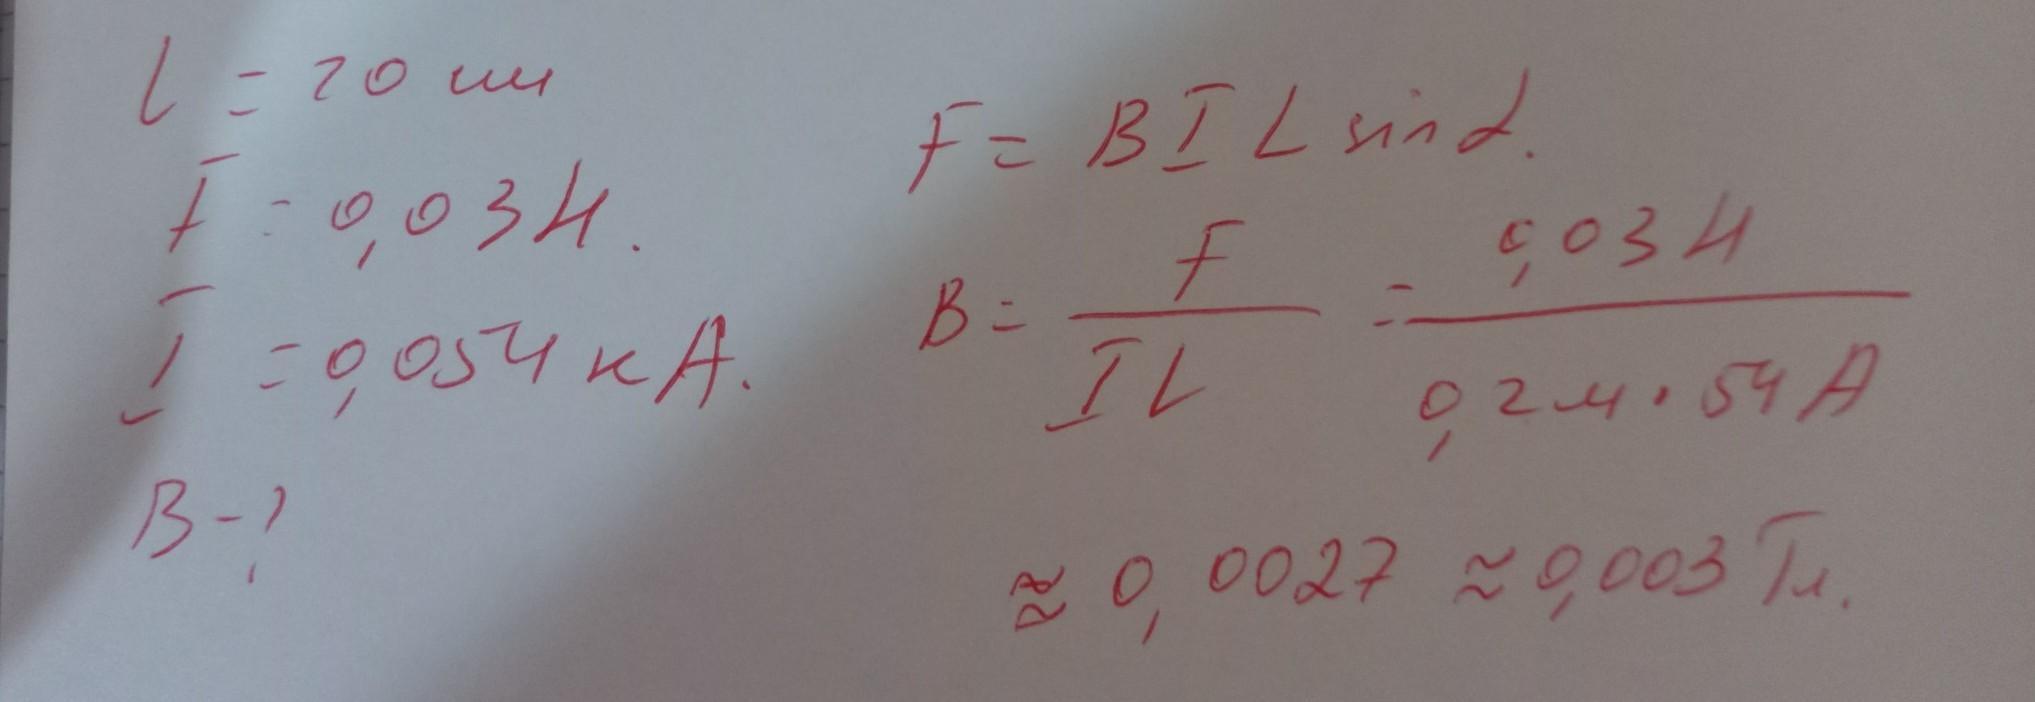 l = 20 см
F = 0,03 Н.
I = 0,054 кА.
B - ?
F = B I L sin α.
B = F / I L = 0,03 Н / 0,2 м · 54 А
≈ 0,0027 ≈ 0,003 Тл.